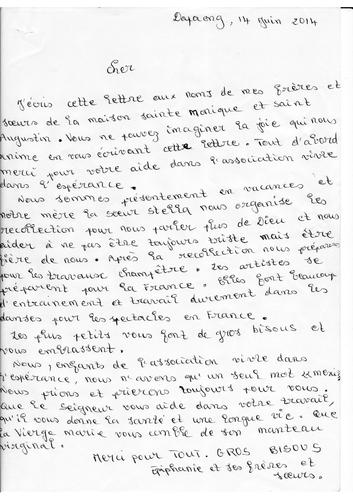 Dapaong, 14 Juin 2014
Cher
J'écris cette lettre aux noms de mes frères et
sœurs de la maison sainte Monique et saint
Augustin. Vous ne pouvez imaginer la joie qui nous
anime en vous écrivant cette lettre. Tout d'abord
merci pour votre aide dans l'association vivre
dans l'espérance.
Nous sommes présentement en vacances et
notre mère la sœur stella nous organise les
recollection pour nous parler plus de Dieu et nous
aider à ne pas être toujours triste mais être
fière de nous. Après la recollection nous préparons
pour les travaux champêtre. Les artistes se
préparent pour la France. Elles font beaucoup
d'entrainement et travail durement dans les
danses pour les spectacles en France.
Les plus petits vous font de gros bisous et
vous embrassent.
Nous, enfants de l'association vivre dans
l'espérance, nous n'avons qu'un seul mot «merci»
Nous prions et prierons toujours pour vous.
Que le Seigneur vous aide dans votre travail,
qu'il vous donne la santé et une longue vie. Que
la Vierge marie vous comble de son manteau
virginal.
Merci pour TOUT. GROS BISOUS
Epiphanie et ses frères et
sœurs.